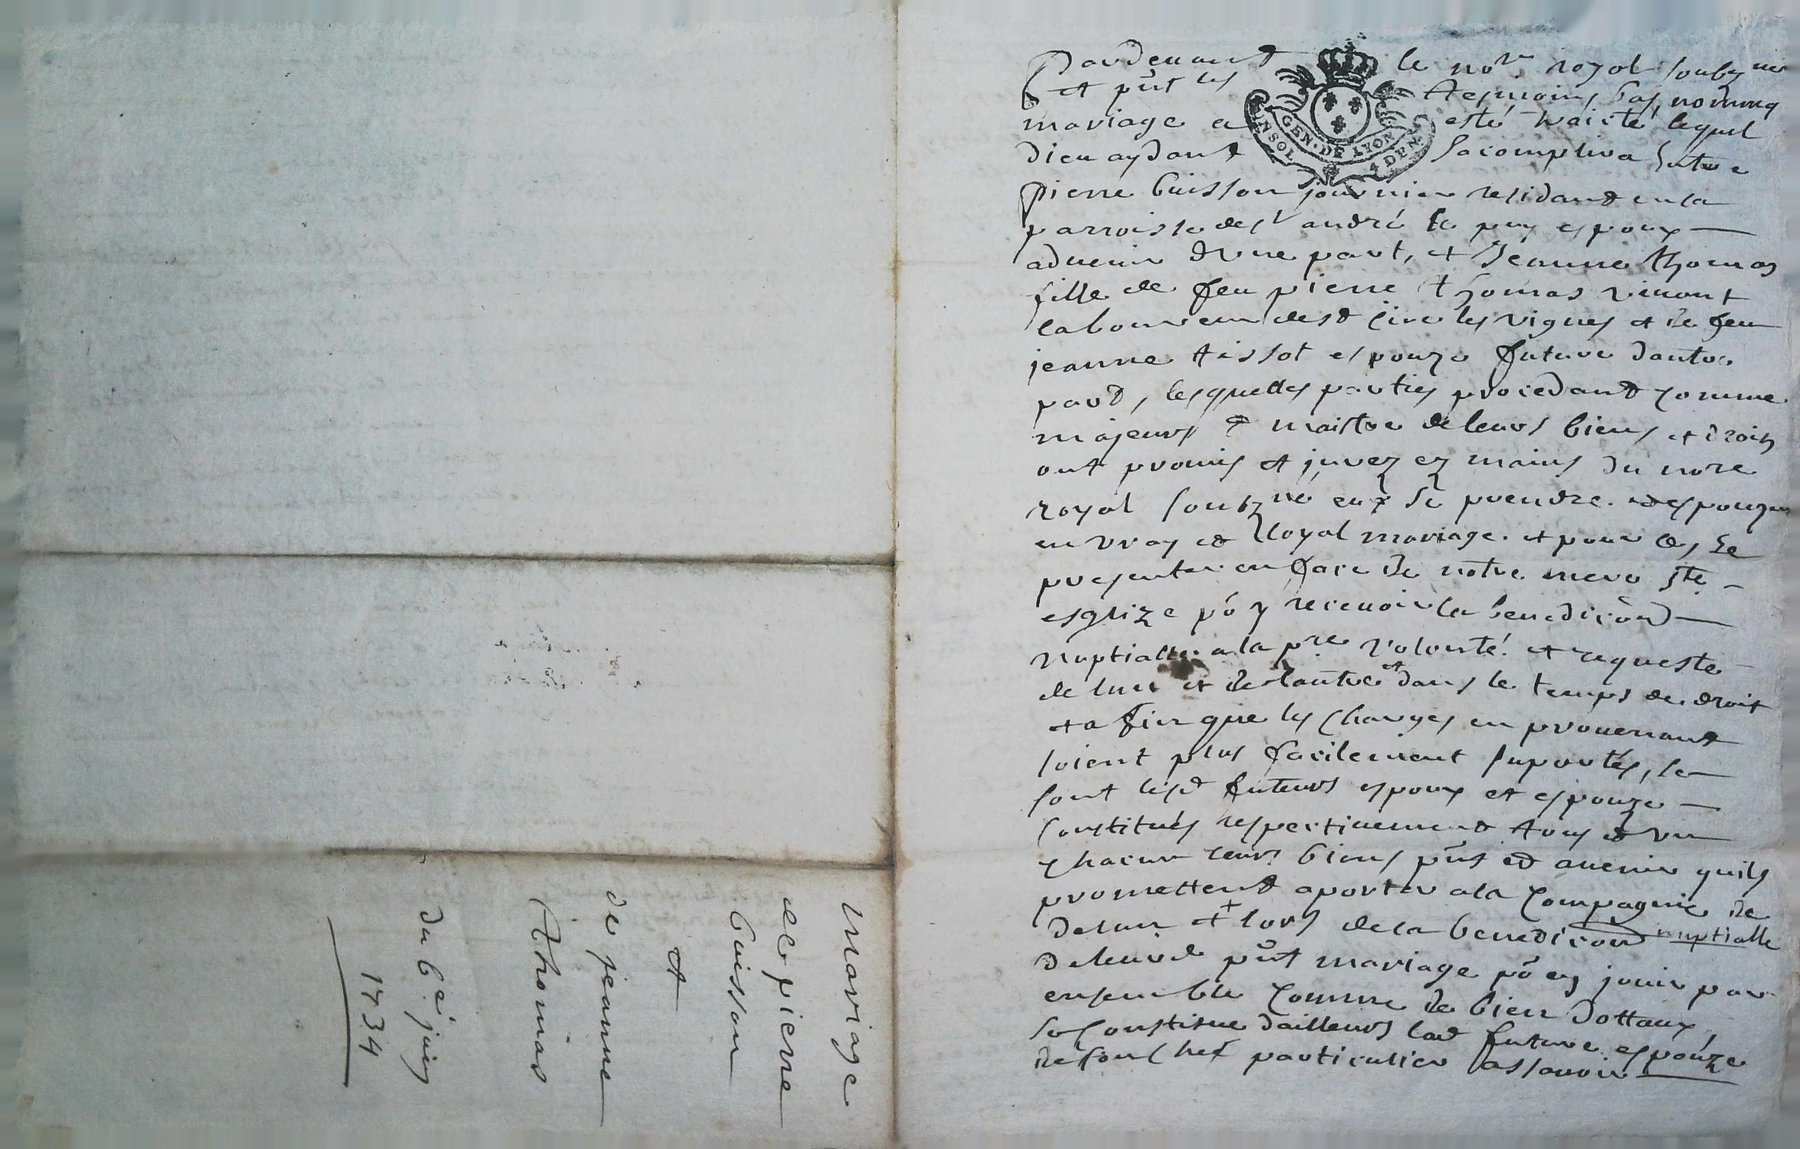 mariage
de pierre
buisson
et
de jeanne
Thomas
du 6e juin
1734
Pardevant le nore royal soubzné
et pñt les tesmoins bas nommés
mariage a esté traicté lequel
GEN. DE LYON
4 DEN.
dieu aydant sacomplira entre
pierre buisson journier residant en la
parroisse de st andré le puy espoux
advenir d'une part, et jeanne thomas
fille de feu pierre thomas vivant
laboureur de st cire les vignes et de feu
jeanne tissot espouze future dautre
part, lesquelles parties procedant comme
majeurs et maistre de leurs biens et droits
ont promis et jurez ez mains du nore
royal soubzné eux se prendre et espouzer
en vray et loyal mariage et pour ce, se
presenter en face de notre mere ste
esglize pő y recevoir la benediciôn
nuptialle a la pre volonté et requeste
de lun et de lautre et dans le temps de droit
et afin que les charges en provenant
soient plus facilement suportés, se
sont lesd futeurs espoux et espouze
constitués respectivement tous et un
chacun leurs biens pñs et avenir quils
promettent aporter a la compagnie de
delun et lors de la benedicion nuptialle
de leur pñt mariage pő en jouir par
ensemble comme de bien dottaux
se constitue dailleurs lad future espouze
de son chef particulier assavoir